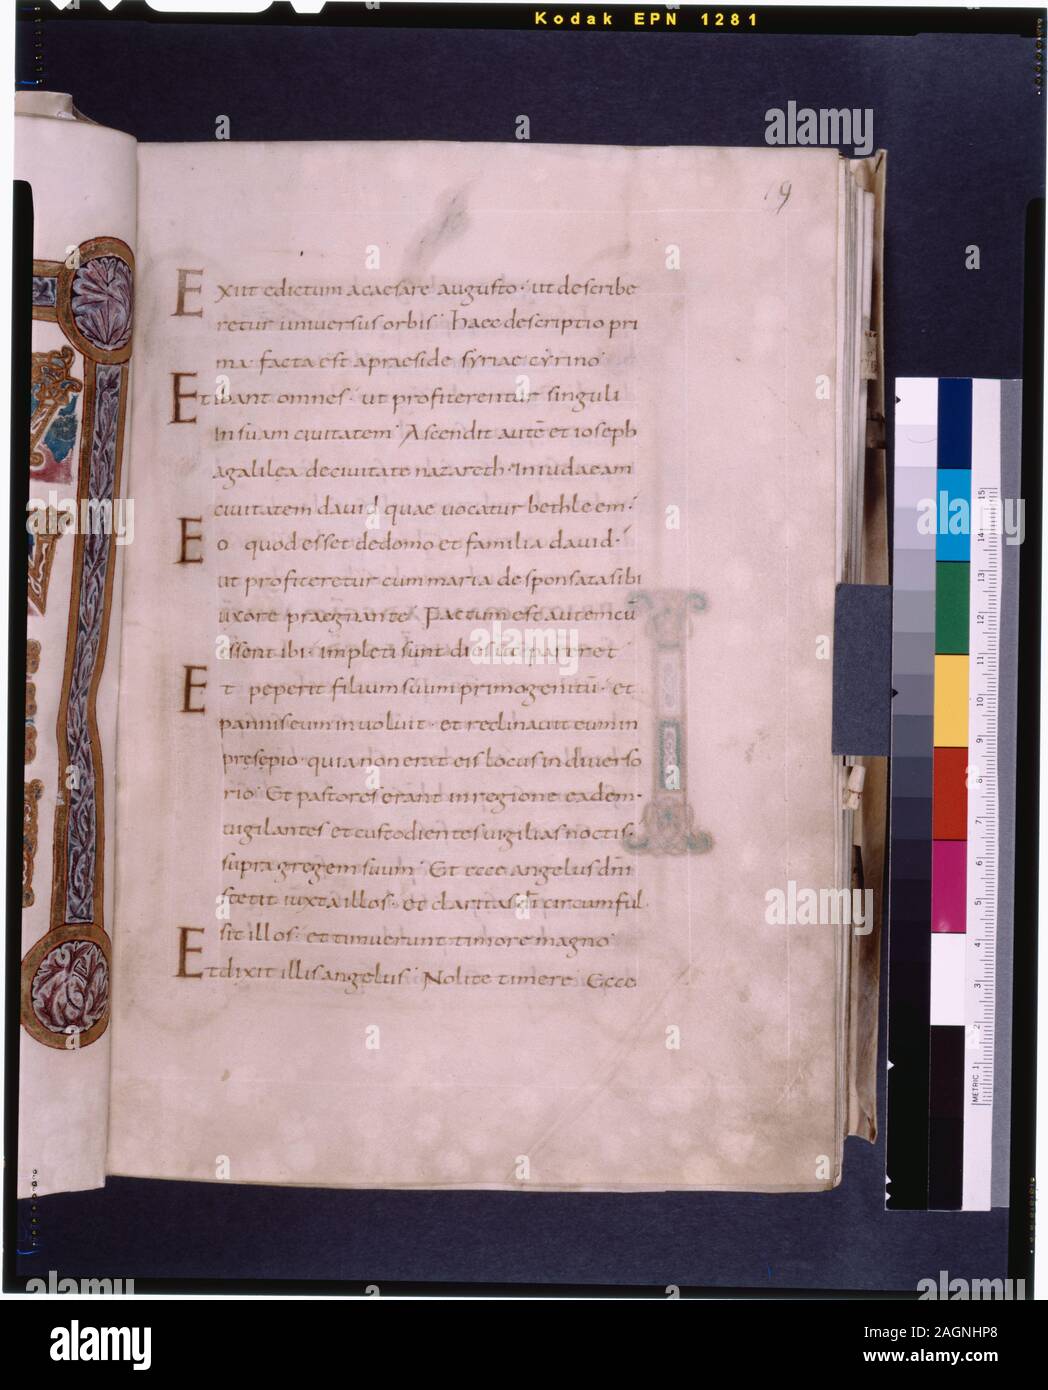 Kodak EPN 1281
9
Exiit edictum acaesare augusto· ut describe
retur universus orbis· haec descriptio pri
ma· facta est apraeside syriae cyrino·
Et ibant omnes· ut profiterentur singuli
insuam civitatem· Ascendit autē et ioseph
agalilea decivitate nazareth· iniudaeam
civitatem david quae vocatur bethleem·
Eo quod esset dedomo et familia david·
ut profiteretur cum maria desponsata sibi
uxore praegnante· Factum est autem cū
essent ibi· impleti sunt dies ut pareret
Et peperit filium suum primogenitū· et
pannis eum involuit· et reclinavit eum in
presepio· quia non erat eis locus in diverso
rio· Et pastores erant in regione eadem·
vigilantes et custodientes vigilias noctis·
supra gregem suum· Et ecce angelus dn̄i
stetit iuxta illos· et claritas dī circumful·
sit illos· et timuerunt timore magno·
Et dixit illis angelus· Nolite timere· Ecce
METRIC 1 2 3 4 5 6 7 8 9 10 11 12 13 14 15
a alamy stock photo
a alamy
Image ID: 2AGNHP8
www.alamy.com